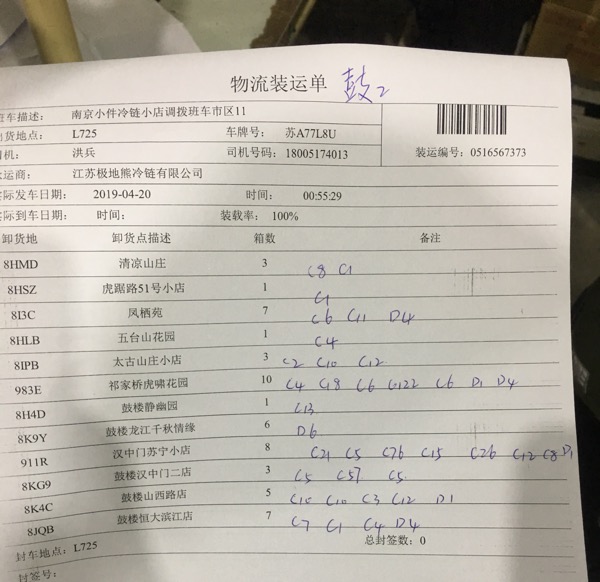 物流装运单 鼓2
班车描述： 南京小件冷链小店调拨班车市区11
出货地点： L725 车牌号： 苏A77L8U
司机： 洪兵 司机号码： 18005174013 装运编号：0516567373
承运商： 江苏极地熊冷链有限公司
实际发车日期： 2019-04-20 时间： 00:55:29
实际到车日期： 时间： 装载率： 100%
卸货地 卸货点描述 箱数 备注
8HMD 清凉山庄 3 C8 C1
8HSZ 虎踞路51号小店 1 C1
8I3C 凤栖苑 7 C6 C11 D4
8HLB 五台山花园 1 C4
8IPB 太古山庄小店 3 C2 C10 C12
983E 祁家桥虎啸花园 10 C4 C18 C6 C122 C6 D1 D4
8H4D 鼓楼静幽园 1 C13
8K9Y 鼓楼龙江千秋情缘 6 D6
911R 汉中门苏宁小店 8 C21 C5 C76 C15 C26 C12 C8 D1
8KG9 鼓楼汉中门二店 3 C5 C57 C5
8K4C 鼓楼山西路店 5 C10 C10 C3 C12 D1
8JQB 鼓楼恒大滨江店 7 C7 C1 C4 D4
封车地点：L725 总封签数：0
封签号：